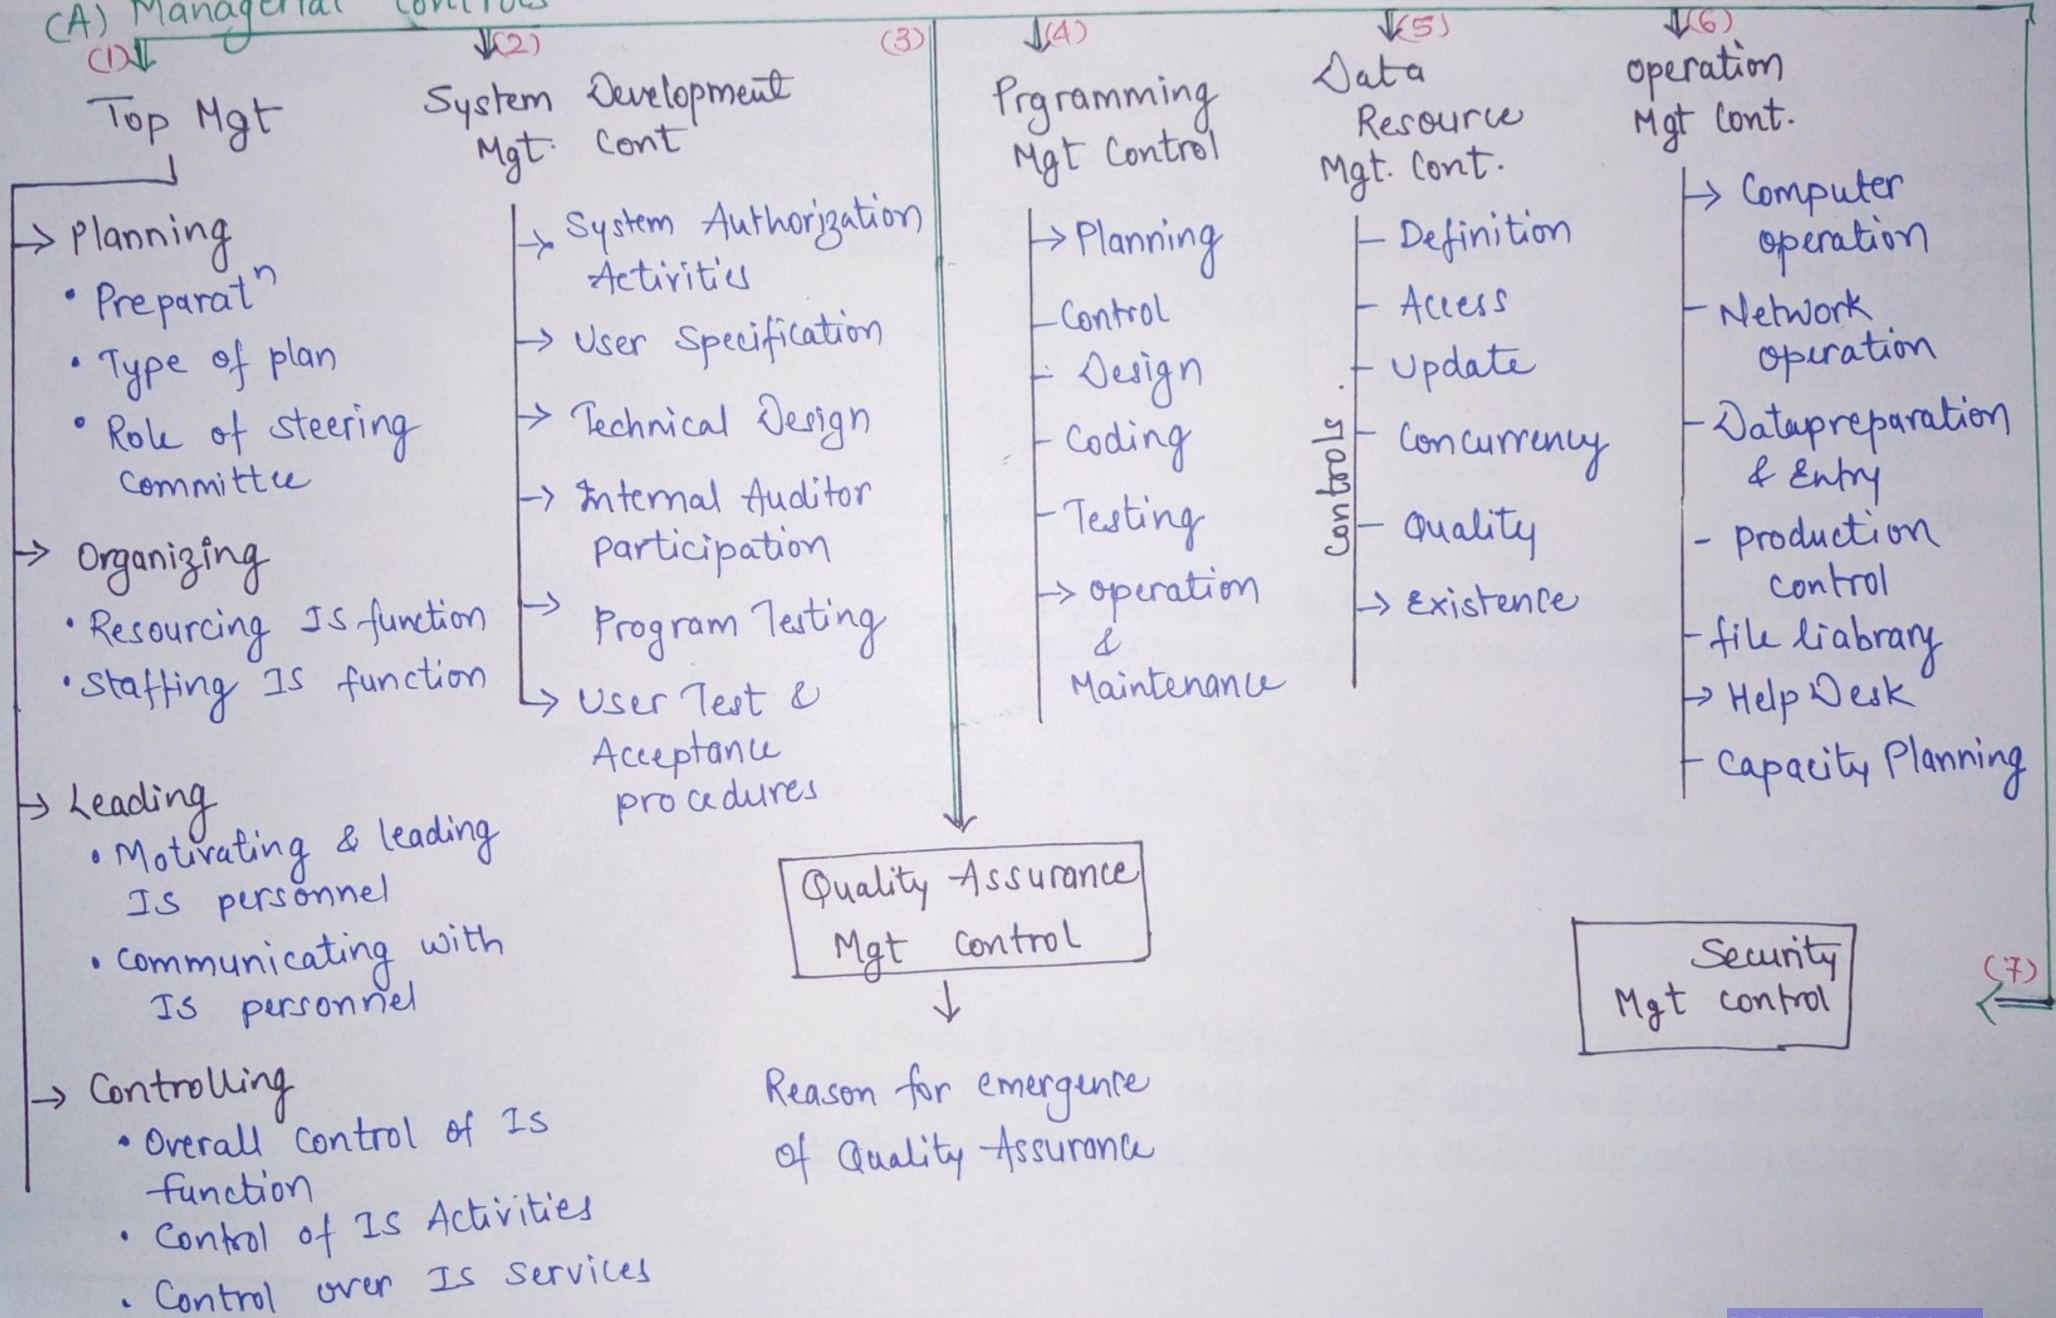 (A) Managerial Controls
(1)
Top Mgt
Planning
• Preparatⁿ
• Type of plan
• Role of steering
committee
Organizing
• Resourcing IS function
• Staffing IS function
Leading
• Motivating & leading
IS personnel
• Communicating with
IS personnel
Controlling
• Overall control of IS
function
• Control of IS Activities
• Control over IS services
(2)
System Development
Mgt. Cont
System Authorization
Activities
User Specification
Technical Design
Internal Auditor
participation
Program Testing
User Test &
Acceptance
procedures
(3)
Quality Assurance
Mgt control
Reason for emergence
of Quality Assurance
(4)
Prgramming
Mgt Control
Planning
Control
Design
Coding
Testing
operation
&
Maintenance
(5)
Data
Resource
Mgt. Cont.
Controls.
Definition
Access
Update
Concurrency
Quality
Existence
(6)
operation
Mgt Cont.
Computer
operation
Network
operation
Datapreparation
& Entry
- production
control
file liabrary
Help Desk
Capacity Planning
(7)
Security
Mgt control